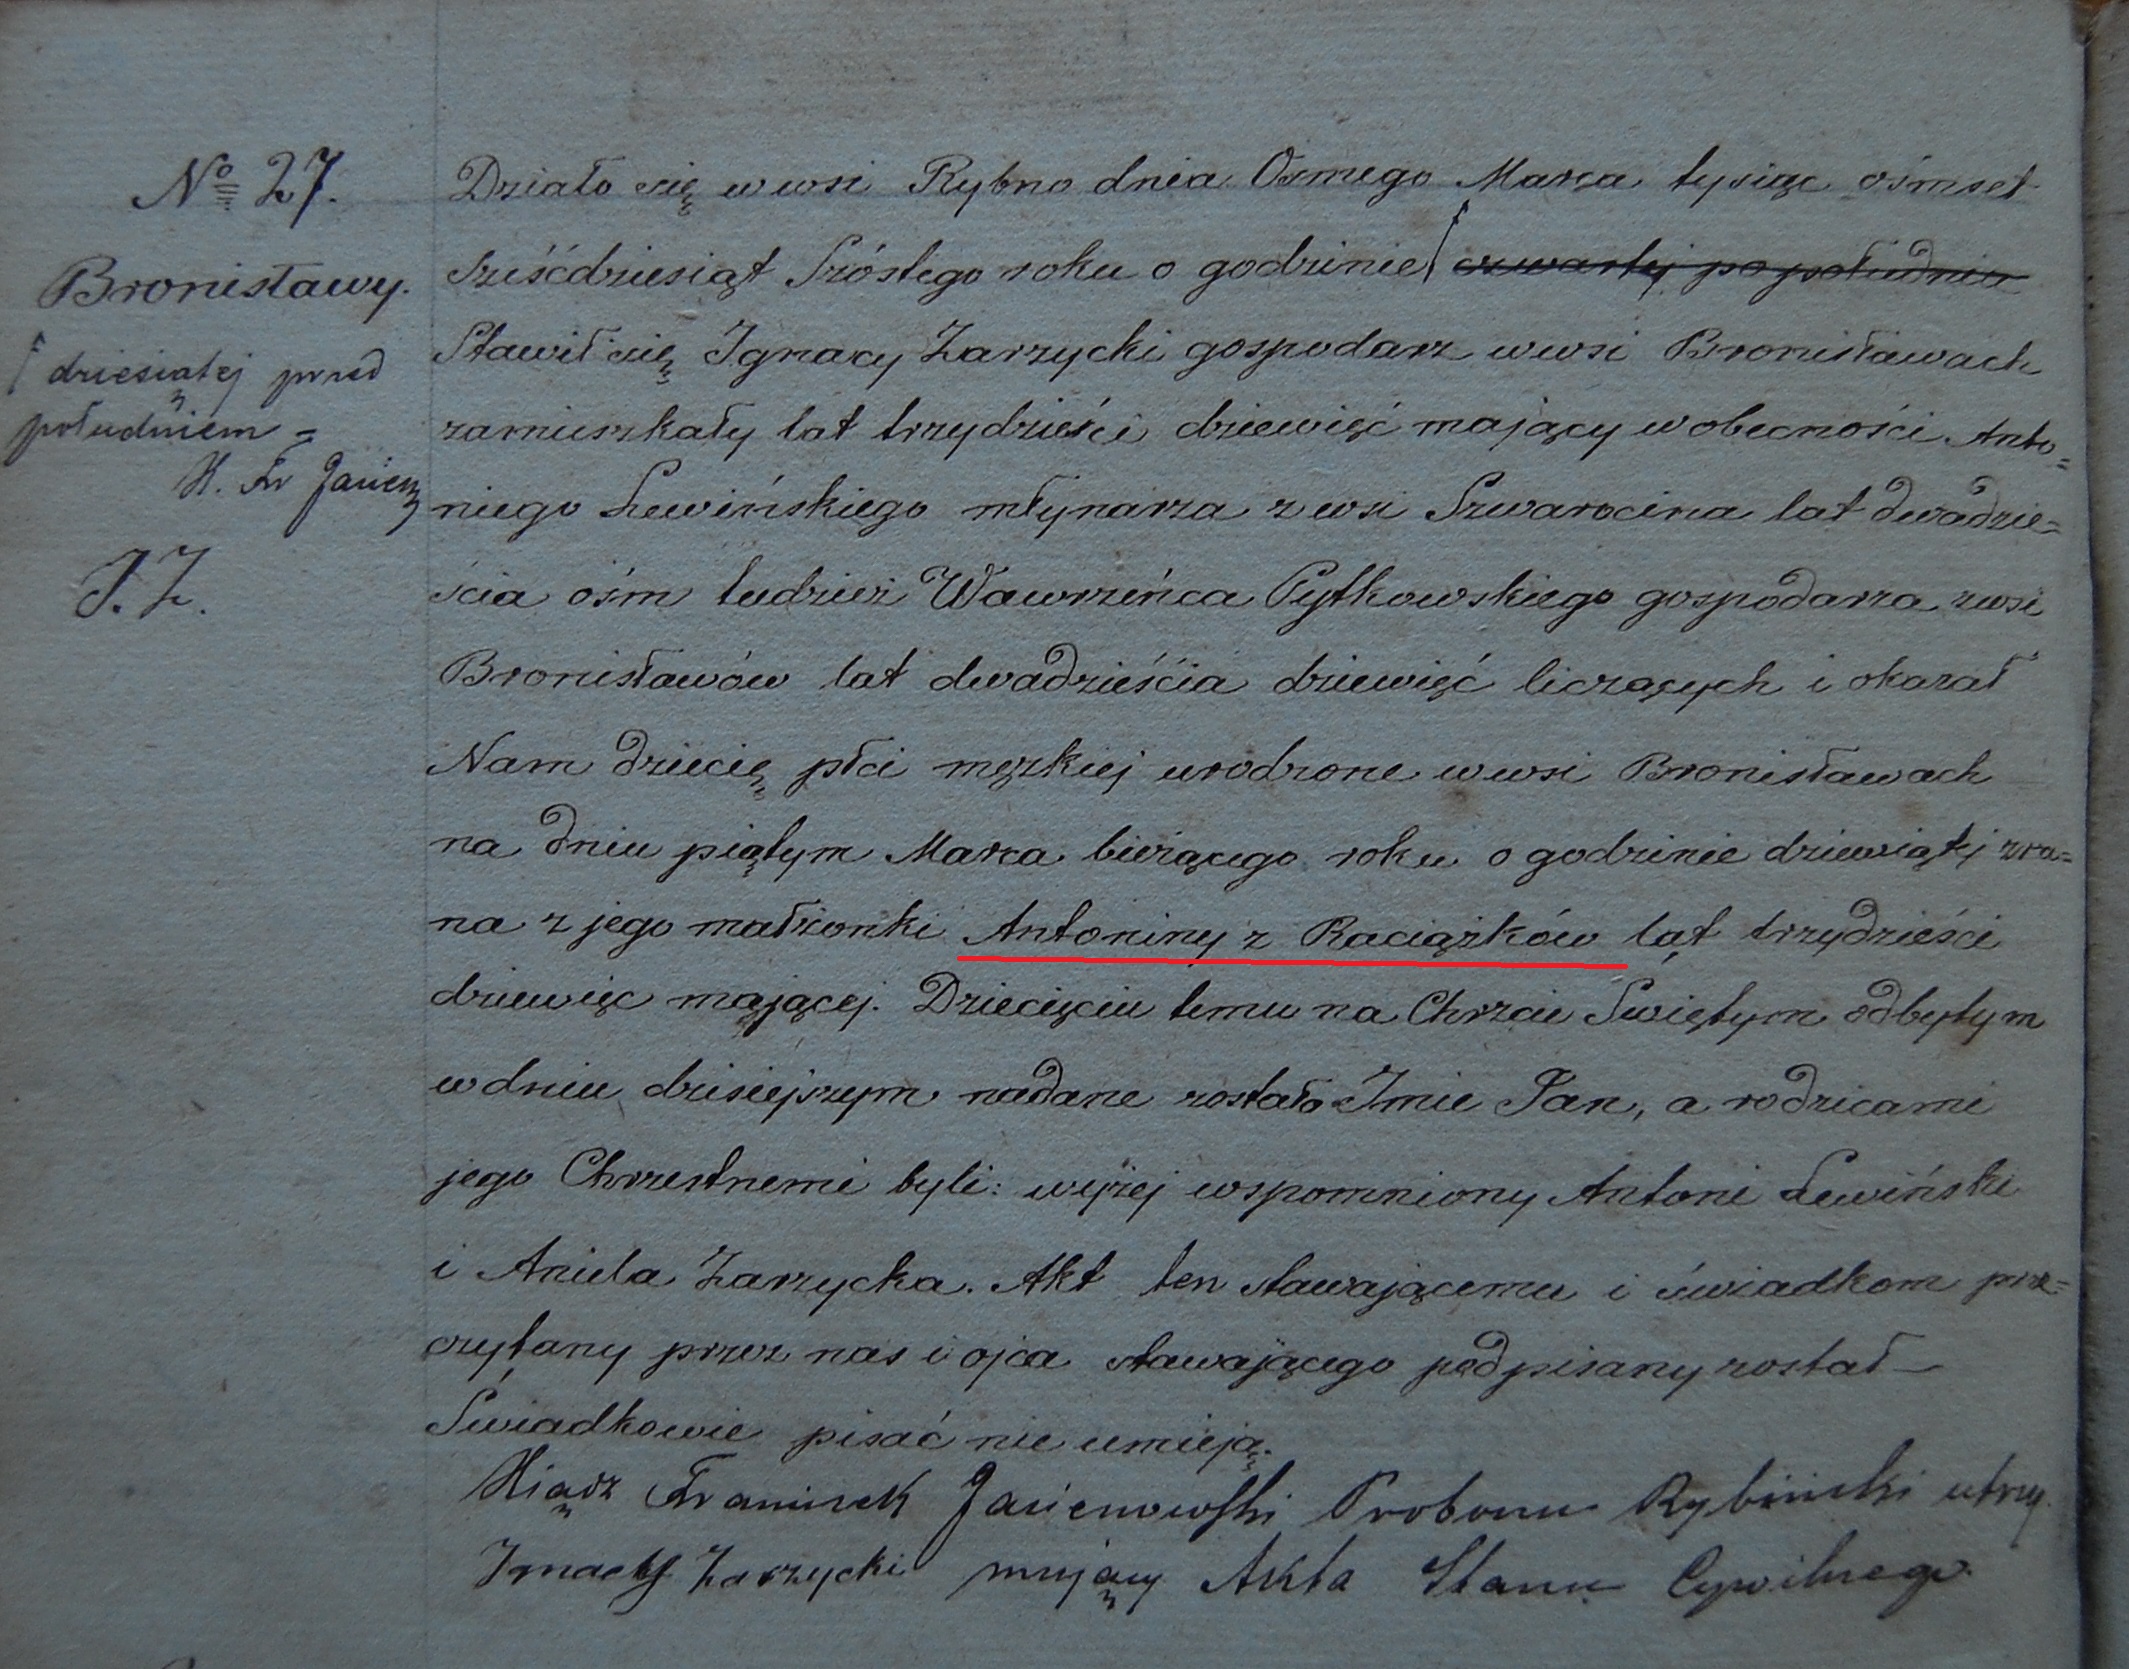 № 27.
Bronisławy.
dziesiątej przed
południem =
X. Fr Jasien
I. Z.
Działo się w wsi Rybno dnia Osmego Marca tysiąc ośmset
sześćdziesiąt Szóstego roku o godzinie czwartej po południu
Stawił się Ignacy Zarzycki gospodarz w wsi Bronisławach
zamieszkały lat trzydzieści dziewięć mający w obecności Anto=
niego Lewińskiego młynarza z wsi Szwarocina lat dwadzie=
ścia ośm tudzież Wawrzeńca Pytkowskiego gospodarza z wsi
Bronisławów lat dwadzieścia dziewięć liczących i okazał
Nam dziecię płci męzkiej urodzone w wsi Bronisławach
na dniu piątym Marca bieżącego roku o godzinie dziewiątej zra=
na z jego małżonki Antoniny z Raciążków lat trzydzieści
dziewięc mającej. Dziecięciu temu na Chrzcie Świętym odbytym
w dniu dzisiejszym nadane zostało Imie Jan, a rodzicami
jego Chrzestnemi byli: wyżej wspomniony Antoni Lewiński
i Aniela Zarzycka. Akt ten stawającemu i świadkom prze=
czytany przez nas i ojca stawającego podpisany został —
Świadkowie pisać nie umieją.
Xiądz Franciszek Jasienowski Proboszcz Rybiński utrzy
Ignacy Zarzycki mujący Akta Stanu Cywilnego.